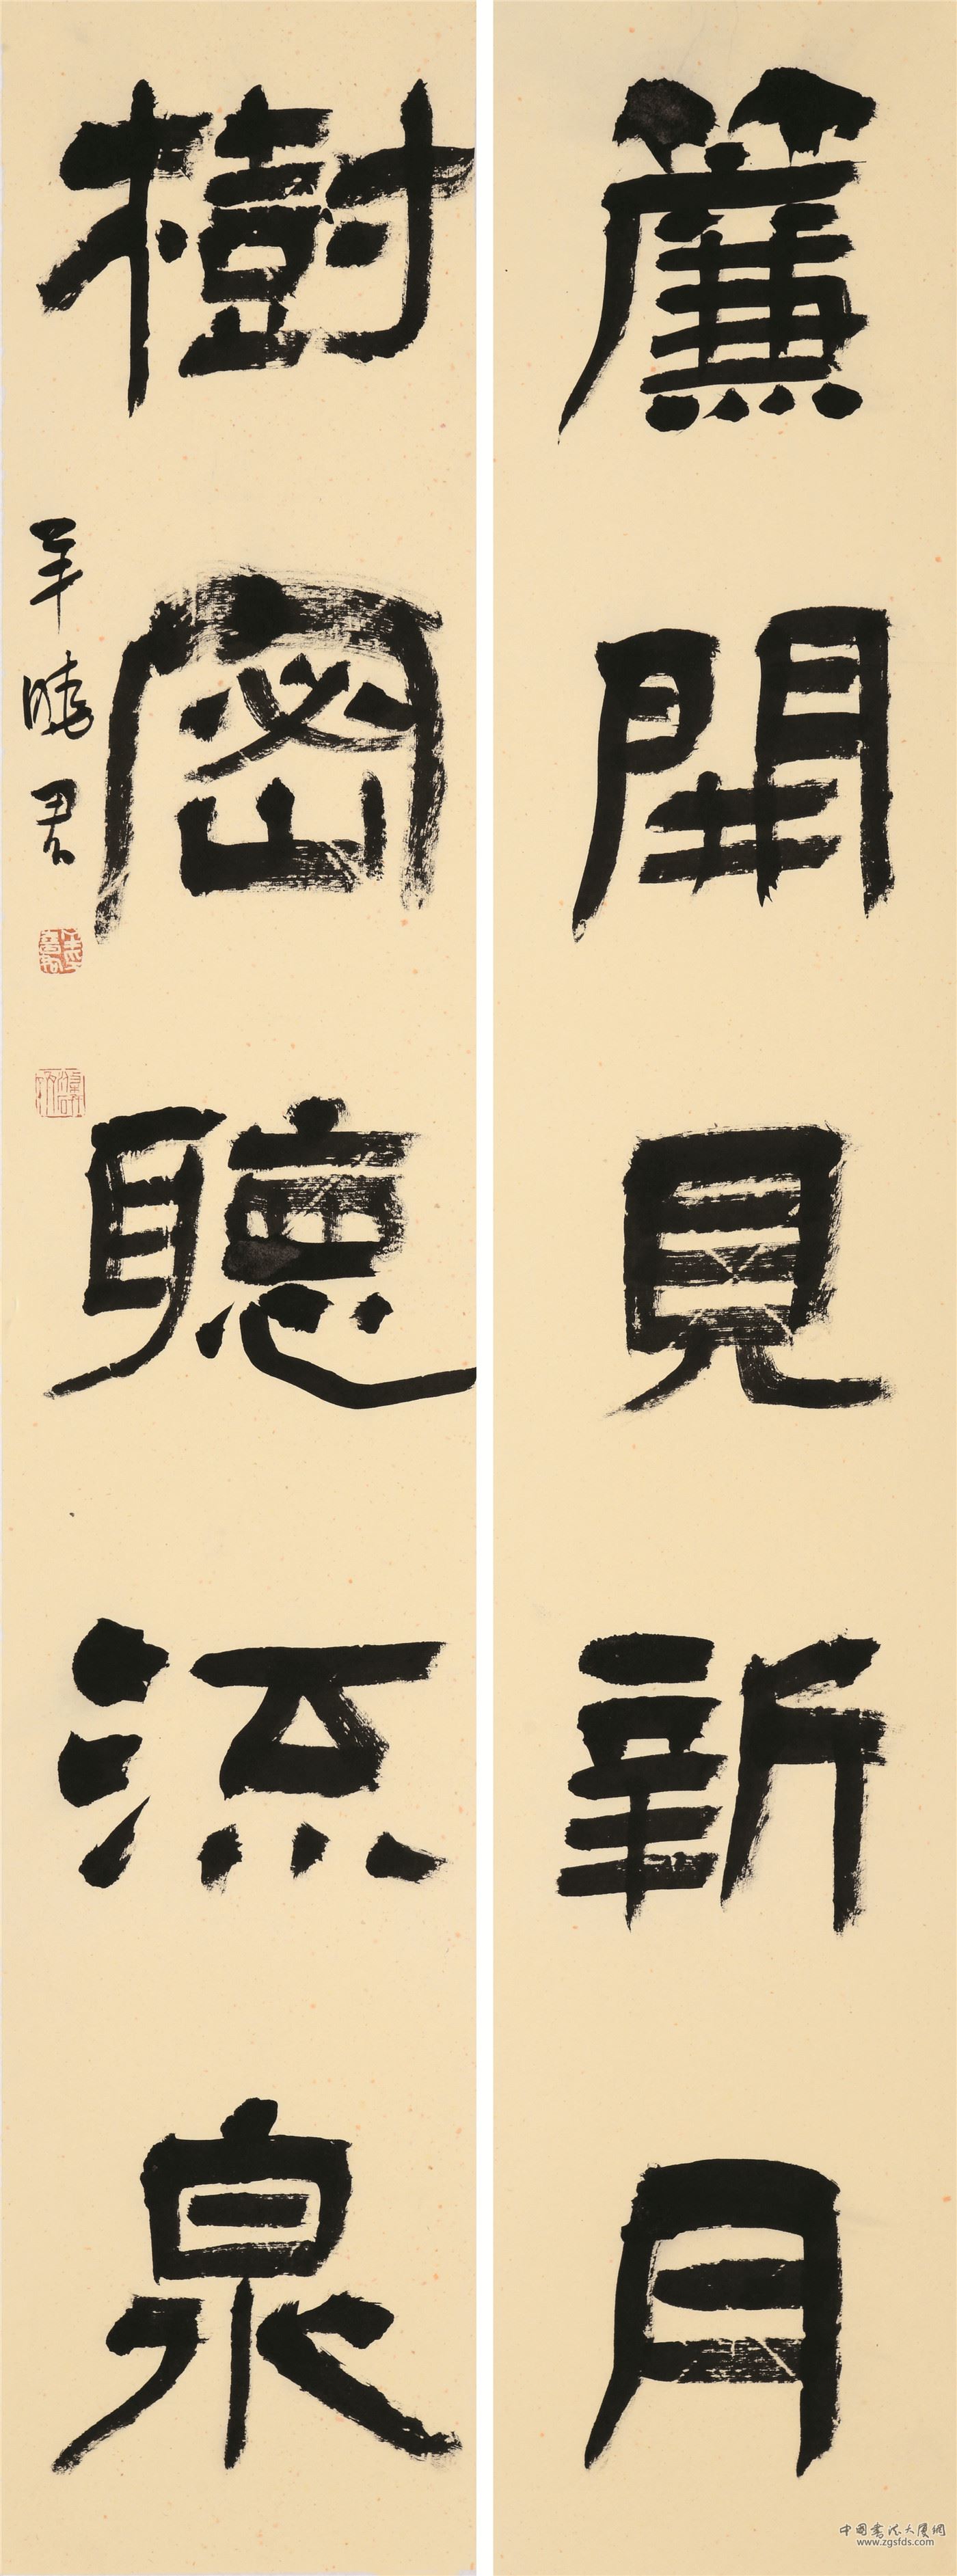 簾開見新月
樹密聽流泉
羊曉君
中國書法大廈網
www.zgsfds.com